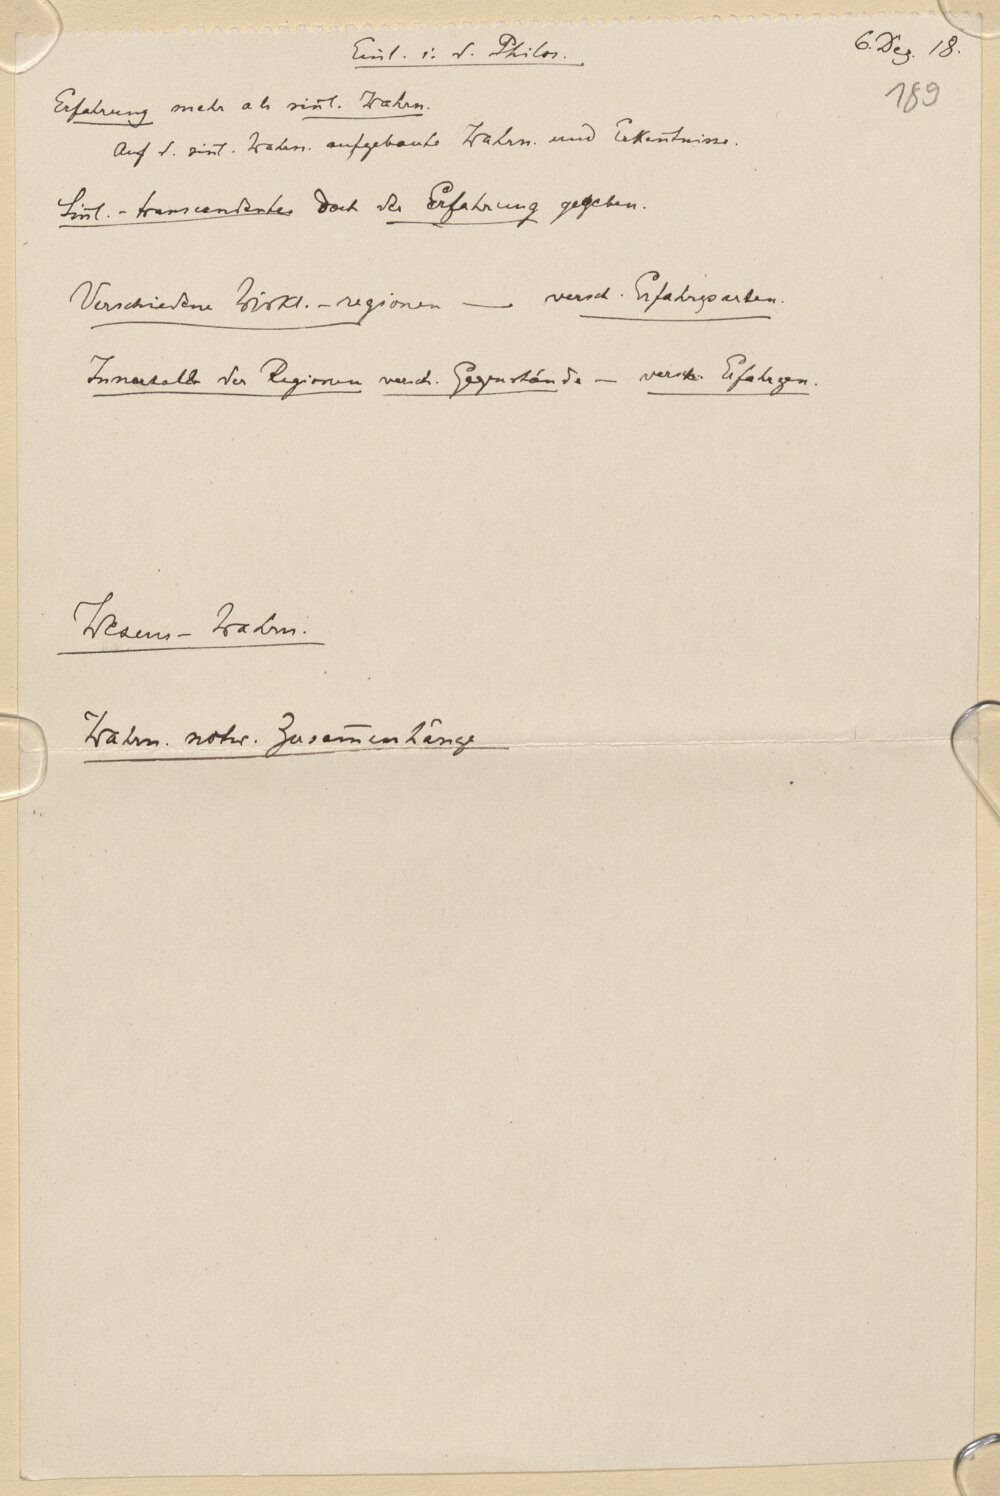 Einl. i. d. Philos.
6. Dez. 18.
189
Erfahrung mehr als sinl. Wahrn.
Auf d. sinl. Wahrn. aufgebaute Wahrn. und Erkentnisse.
Sinl.-transcendentes doch der Erfahrung gegeben.
Verschiedene Wirkl.-regionen — versch. Erfahrgsarten.
Innerhalb der Regionen versch. Gegenstände — versch. Erfahrgen.
Wesens-Wahrn.
Wahrn. notw. Zusam̅enhänge